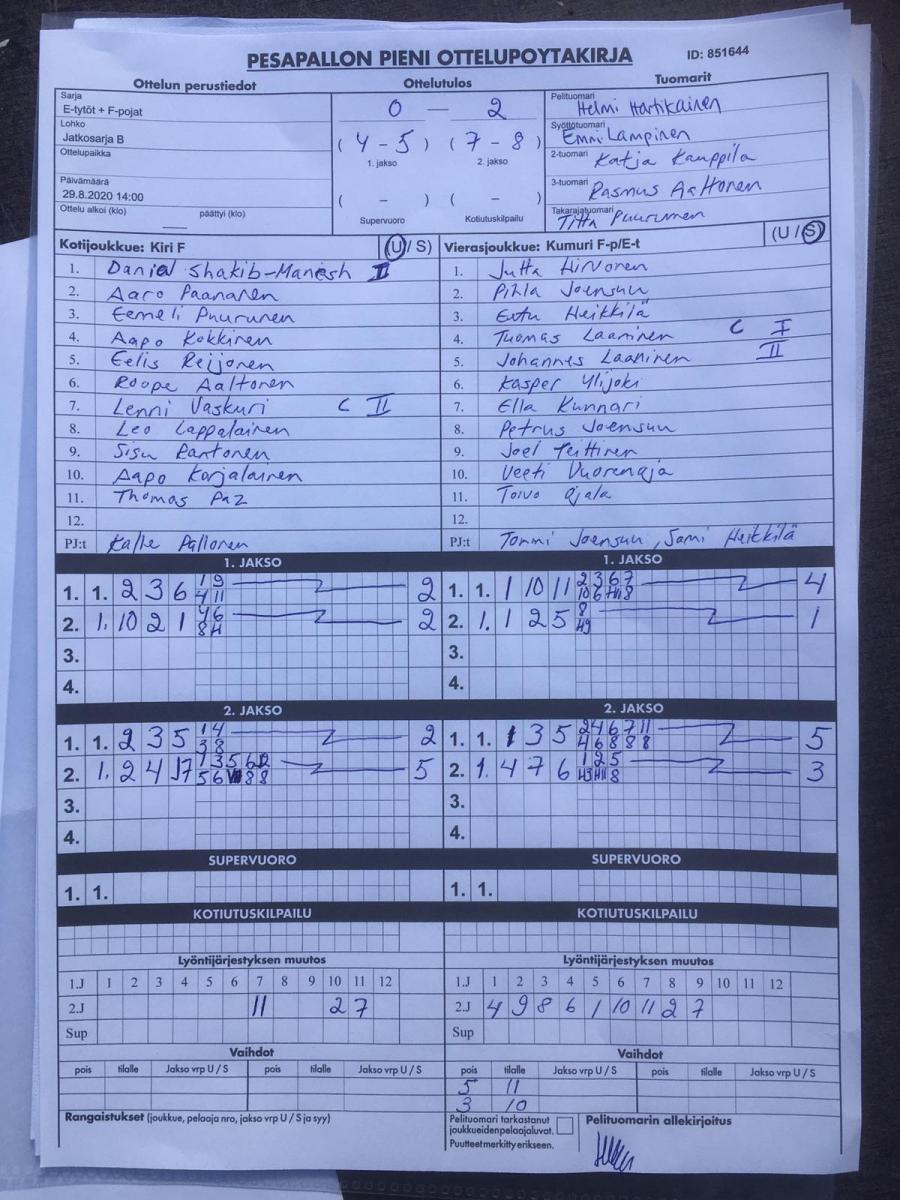 PESAPALLON PIENI OTTELUPOYTAKIRJA ID: 851644
Ottelun perustiedot Ottelutulos Tuomarit
Sarja
E-tytöt + F-pojat
Lohko
Jatkosarja B
Ottelupaikka
Päivämäärä
29.8.2020 14:00
Ottelu alkoi (klo) päättyi (klo)
0 — 2
( 4 - 5 ) ( 7 - 8 )
1. jakso 2. jakso
( - ) ( - )
Supervuoro Kotiutuskilpailu
Pelituomari Helmi Hartikainen
Syöttötuomari Emni Lampinen
2-tuomari Katja Kauppila
3-tuomari Rasmus Aaltonen
Takarajatuomari Titta Puurunen
Kotijoukkue: Kiri F (U / S)
1. Daniel Shakib-Manesh II
2. Aaro Paananen
3. Eemeli Puurunen
4. Aapo Kokkinen
5. Eelis Reijonen
6. Roope Aaltonen
7. Lenni Vaskuri C II
8. Leo Lappalainen
9. Sisu Rantonen
10. Aapo Karjalainen
11. Thomas Paz
12.
PJ:t Kalle Pallonen
Vierasjoukkue: Kumuri F-p/E-t (U / S)
1. Jutta Hirvonen
2. Pihla Joensuu
3. Eetu Heikkilä
4. Tuomas Laaninen C I
5. Johannes Laaninen II
6. Kasper Ylijoki
7. Ella Kunnari
8. Petrus Joensuu
9. Joel Teittinen
10. Veeti Vuorenoja
11. Toivo Ojala
12.
PJ:t Tommi Joensuu, Sami Heikkilä
1. JAKSO 1. JAKSO
1. 1. 2 3 6 1 9 2 1. 1. 1 10 11 2 3 6 7 4
4 11
2. 1. 10 2 1 4 6 2 2. 1. 1 2 5 8 1
3. 3.
4. 4.
2. JAKSO 2. JAKSO
1. 1. 2 3 5 1 4 2 1. 1. 1 3 5 2 4 6 7 11 5
3 8 4 6 8 8 8
2. 1. 2 4 5 2. 1. 4 7 6 1 2 5 3
3. 3.
4. 4.
SUPERVUORO SUPERVUORO
1. 1. 1. 1.
KOTIUTUSKILPAILU KOTIUTUSKILPAILU
Lyöntijärjestyksen muutos Lyöntijärjestyksen muutos
1.J 1 2 3 4 5 6 7 8 9 10 11 12 1.J 1 2 3 4 5 6 7 8 9 10 11 12
2.J 11 2 7 2.J 4 9 8 6 1 10 11 2 7
Sup Sup
Vaihdot Vaihdot
pois tilalle Jakso vrp U / S pois tilalle Jakso vrp U / S pois tilalle Jakso vrp U / S pois tilalle Jakso vrp U / S
5 11
3 10
Rangaistukset (joukkue, pelaaja nro, jakso vrp U / S ja syy)
Pelituomari tarkastanut
joukkueidenpelaajaluvat.
Puutteetmerkittyerikseen.
Pelituomarin allekirjoitus